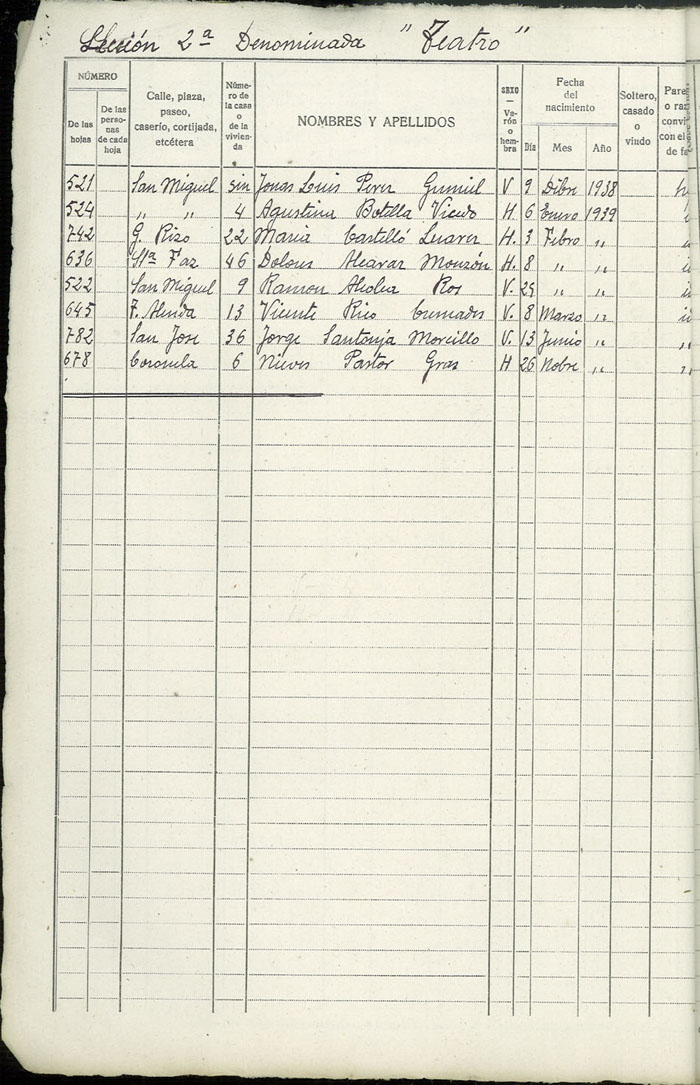 Sección 2ª Denominada "Teatro"
NÚMERO
De las hojas
De las personas de cada hoja
Calle, plaza, paseo, caserío, cortijada, etcétera
Número de la casa o de la vivienda
NOMBRES Y APELLIDOS
SEXO — Varón o hembra
Fecha del nacimiento
Día Mes Año
Soltero, casado o viudo
521 San Miguel sin Jonas Luis Perez Gumiel V. 9 Dibre 1938
524 " " 4 Agustina Botella Vicedo H. 6 Enero 1939
742 G. Rizo 22 Maria Castelló Suarez H. 3 Febro "
636 Stª Faz 46 Dolores Alcaraz Monzón H. 8 " "
522 San Miguel 9 Ramon Ros V. 25 " "
645 13 Vicente Rico V. 8 Marzo "
782 San Jose 36 Jorge Santonja Morcillo V. 13 Junio "
678 Coronela 6 Nieves Pastor Gras H 26 Nobre "